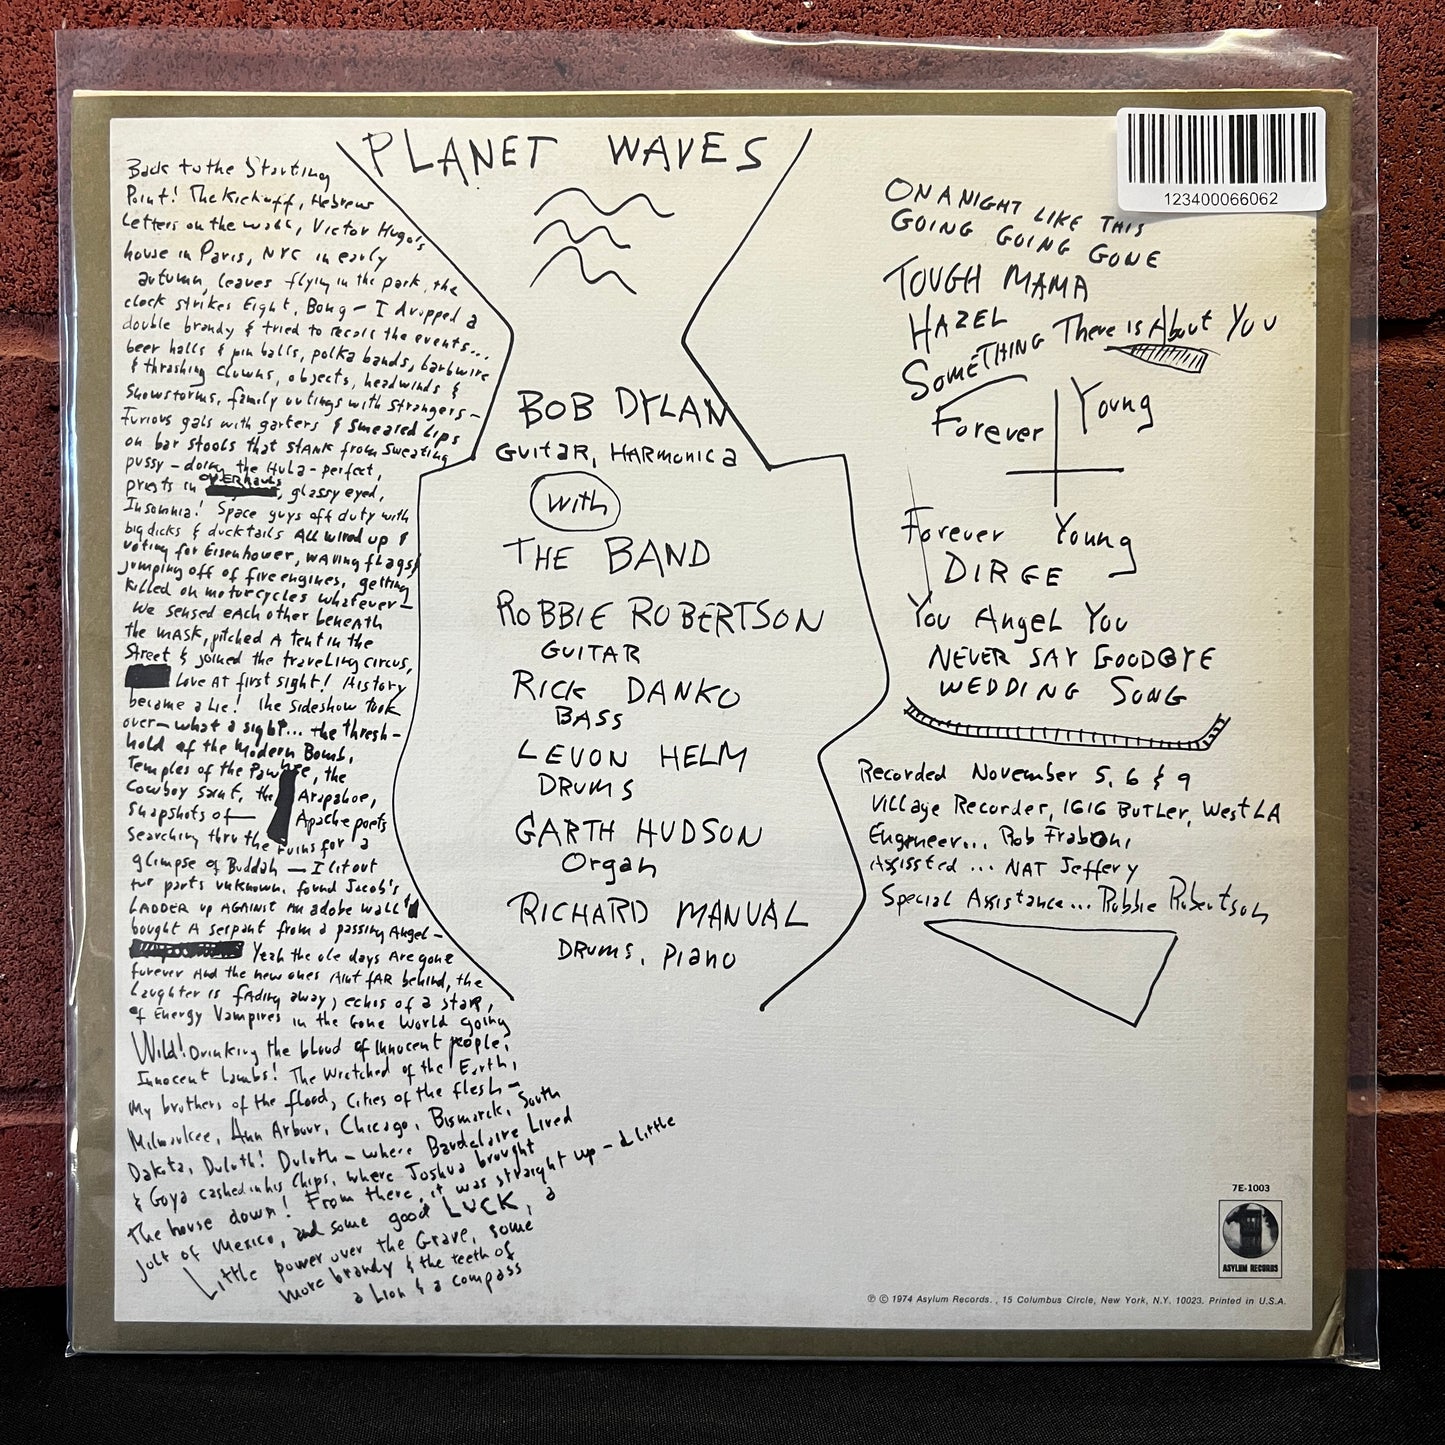 PLANET WAVES
Back to the Starting
Point! The Kickoff, Hebrew
Letters on the wall, Victor Hugo's
house in Paris, NYC in early
autumn, leaves flying in the park, the
clock strikes Eight, Bong – I dropped a
double brandy & tried to recall the events...
beer halls & pin balls, polka bands, barbwire
& thrashing clowns, objects, headwinds &
Snowstorms, family outings with strangers –
Furious gals with garters & smeared Lips
on bar stools that stank from sweating
pussy – doing the Hula – perfect,
priests in OVERhauls, glassy eyed,
Insomnia! Space guys off duty with
big dicks & duck tails All wired up &
voting for Eisenhower, waving flags &
jumping off of fire engines, getting
Killed on motorcycles whatever –
We sensed each other beneath
the mask, pitched a tent in the
Street & joined the traveling circus,
Love at first sight! History
became a Lie! the sideshow took
over – what a sight... the thresh-
hold of the Modern Bomb,
Temples of the Pawnee, the
Cowboy saint, the Arapahoe,
snapshots of – Apache poets
searching thru the ruins for a
glimpse of Buddah – I lit out
for parts unknown, found Jacob's
LADDER up AGAINST an adobe wall &
bought A serpant from a passing Angel –
Yeah the ole days Are gone
forever And the new ones Aint fAR behind, the
Laughter is fAding away, echos of a star,
of Energy Vampires in the Gone World going
Wild! Drinking the blood of innocent people,
Innocent Lambs! The Wretched of the Earth,
My brothers of the flood, Cities of the flesh –
Milwaukee, Ann Arbour, Chicago, Bismarck, South
Dakota, Duluth! Duluth – where Baudelaire Lived
& Goya cashed in his Chips, where Joshua brought
the house down! From there, it was straight up – a little
jolt of Mexico, and some good LUCK, a
Little power over the Grave, some
more brandy & the teeth of
a Lion & a compass
BOB DYLAN
GUITAR, HARMONICA
With
THE BAND
ROBBIE ROBERTSON
GUITAR
RICK DANKO
BASS
LEVON HELM
DRUMS
GARTH HUDSON
Organ
RICHARD MANUAL
DRUMS, PIANO
123400066062
ON A NIGHT LIKE THIS
GOING GOING GONE
TOUGH MAMA
HAZEL
SOMETHING There is About You
Forever Young
Forever Young
DIRGE
You Angel You
NEVER SAY GOODBYE
WEDDING SONG
Recorded November 5, 6 & 9
Village Recorder, 1616 BUTLER, West LA
Engineer... Rob Fraboni
Assissted ... NAT Jeffery
Special Assistance... Robbie Robertson
7E-1003
ASYLUM RECORDS
℗ © 1974 Asylum Records. , 15 Columbus Circle, New York, N.Y. 10023. Printed in U.S.A.